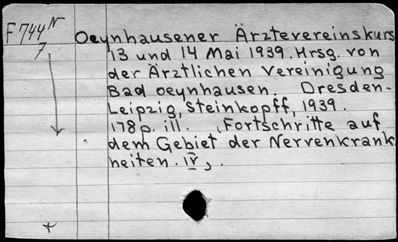 F 744 N
7
Oeynhausener Ärztevereinskurs
13 und 14 Mai 1939. Hrsg. von
der Ärztlichen Vereinigung
Bad oeynhausen. Dresden-
Leipzig, Steinkopff, 1939.
178 p. ill. (Fortschritte auf
dem Gebiet der Nervenkrank
heiten. IV)